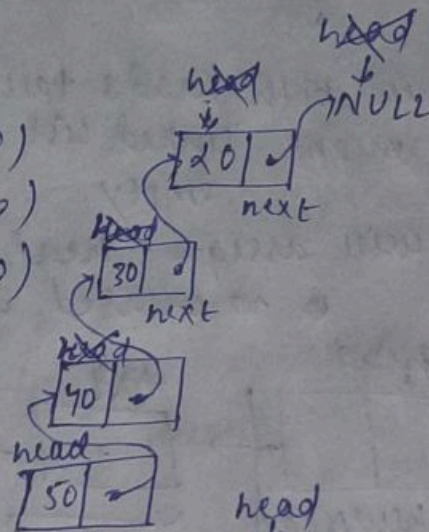 head
head
NULL
20
next
Head
30
next
head
40
head
50
head